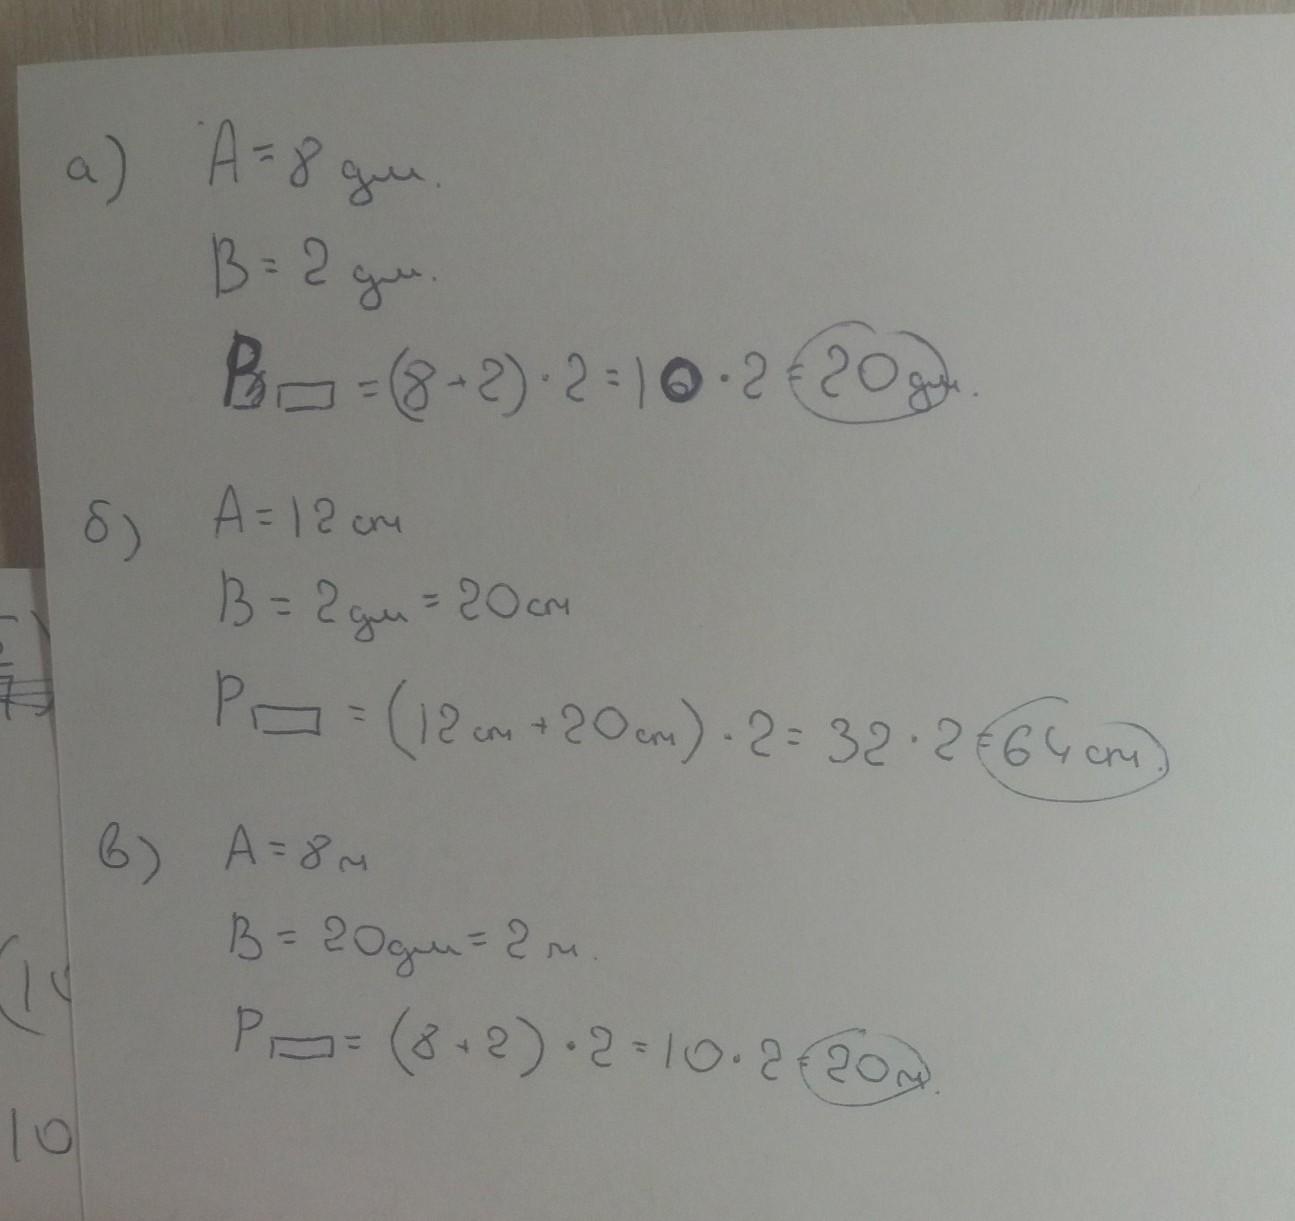 а) A = 8 дм.
B = 2 дм.
B▭ = (8 + 2) · 2 = 10 · 2 = 20 дм.
б) A = 12 см
B = 2 дм = 20 см
P▭ = (12 см + 20 см) · 2 = 32 · 2 = 64 см.
в) A = 8 м
B = 20 дм = 2 м.
P▭ = (8 + 2) · 2 = 10 · 2 = 20 м.
10